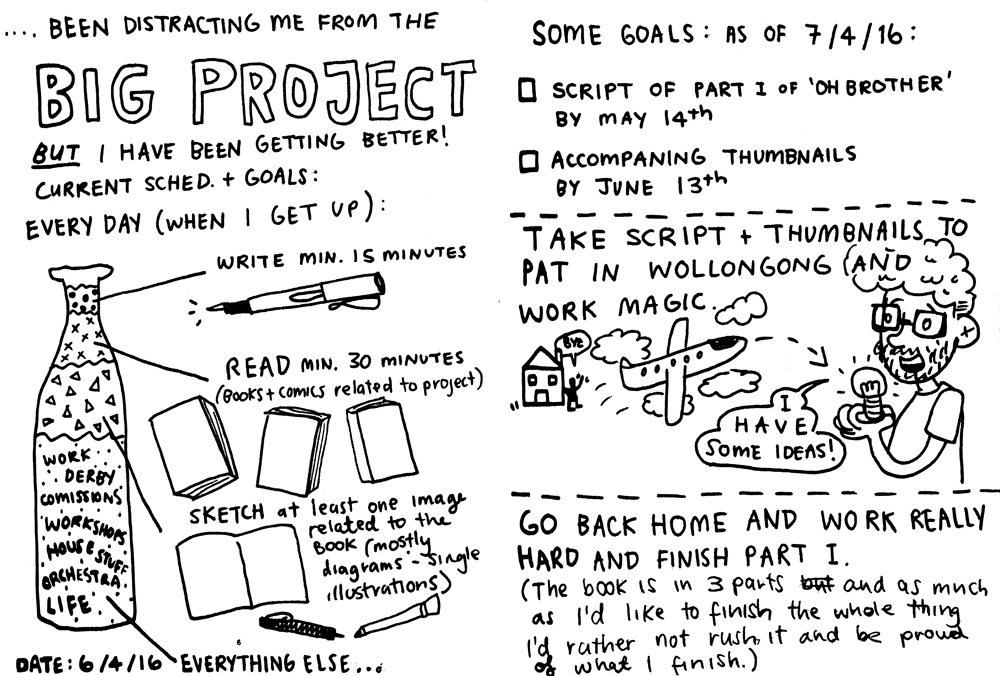 .... BEEN DISTRACTING ME FROM THE
BIG PROJECT
BUT I HAVE BEEN GETTING BETTER!
CURRENT SCHED. + GOALS:
EVERY DAY (WHEN I GET UP):
WRITE MIN. 15 MINUTES
READ MIN. 30 MINUTES
(Books + comics related to project)
SKETCH at least one image
related to the
BOOK (mostly
diagrams - single
illustrations)
WORK
DERBY
COMISSIONS
WORKSHOPS
HOUSE STUFF
ORCHESTRA
LIFE.
DATE: 6/4/16 EVERYTHING ELSE...
SOME GOALS: AS OF 7/4/16:
SCRIPT OF PART I OF 'OH BROTHER'
BY MAY 14th
ACCOMPANING THUMBNAILS
BY JUNE 13th
TAKE SCRIPT + THUMBNAILS TO
PAT IN WOLLONGONG (AND
WORK MAGIC.
BYE
I
HAVE
SOME IDEAS!
GO BACK HOME AND WORK REALLY
HARD AND FINISH PART I.
(The book is in 3 parts but and as much
as I'd like to finish the whole thing
I'd rather not rush it and be proud
of what I finish.)